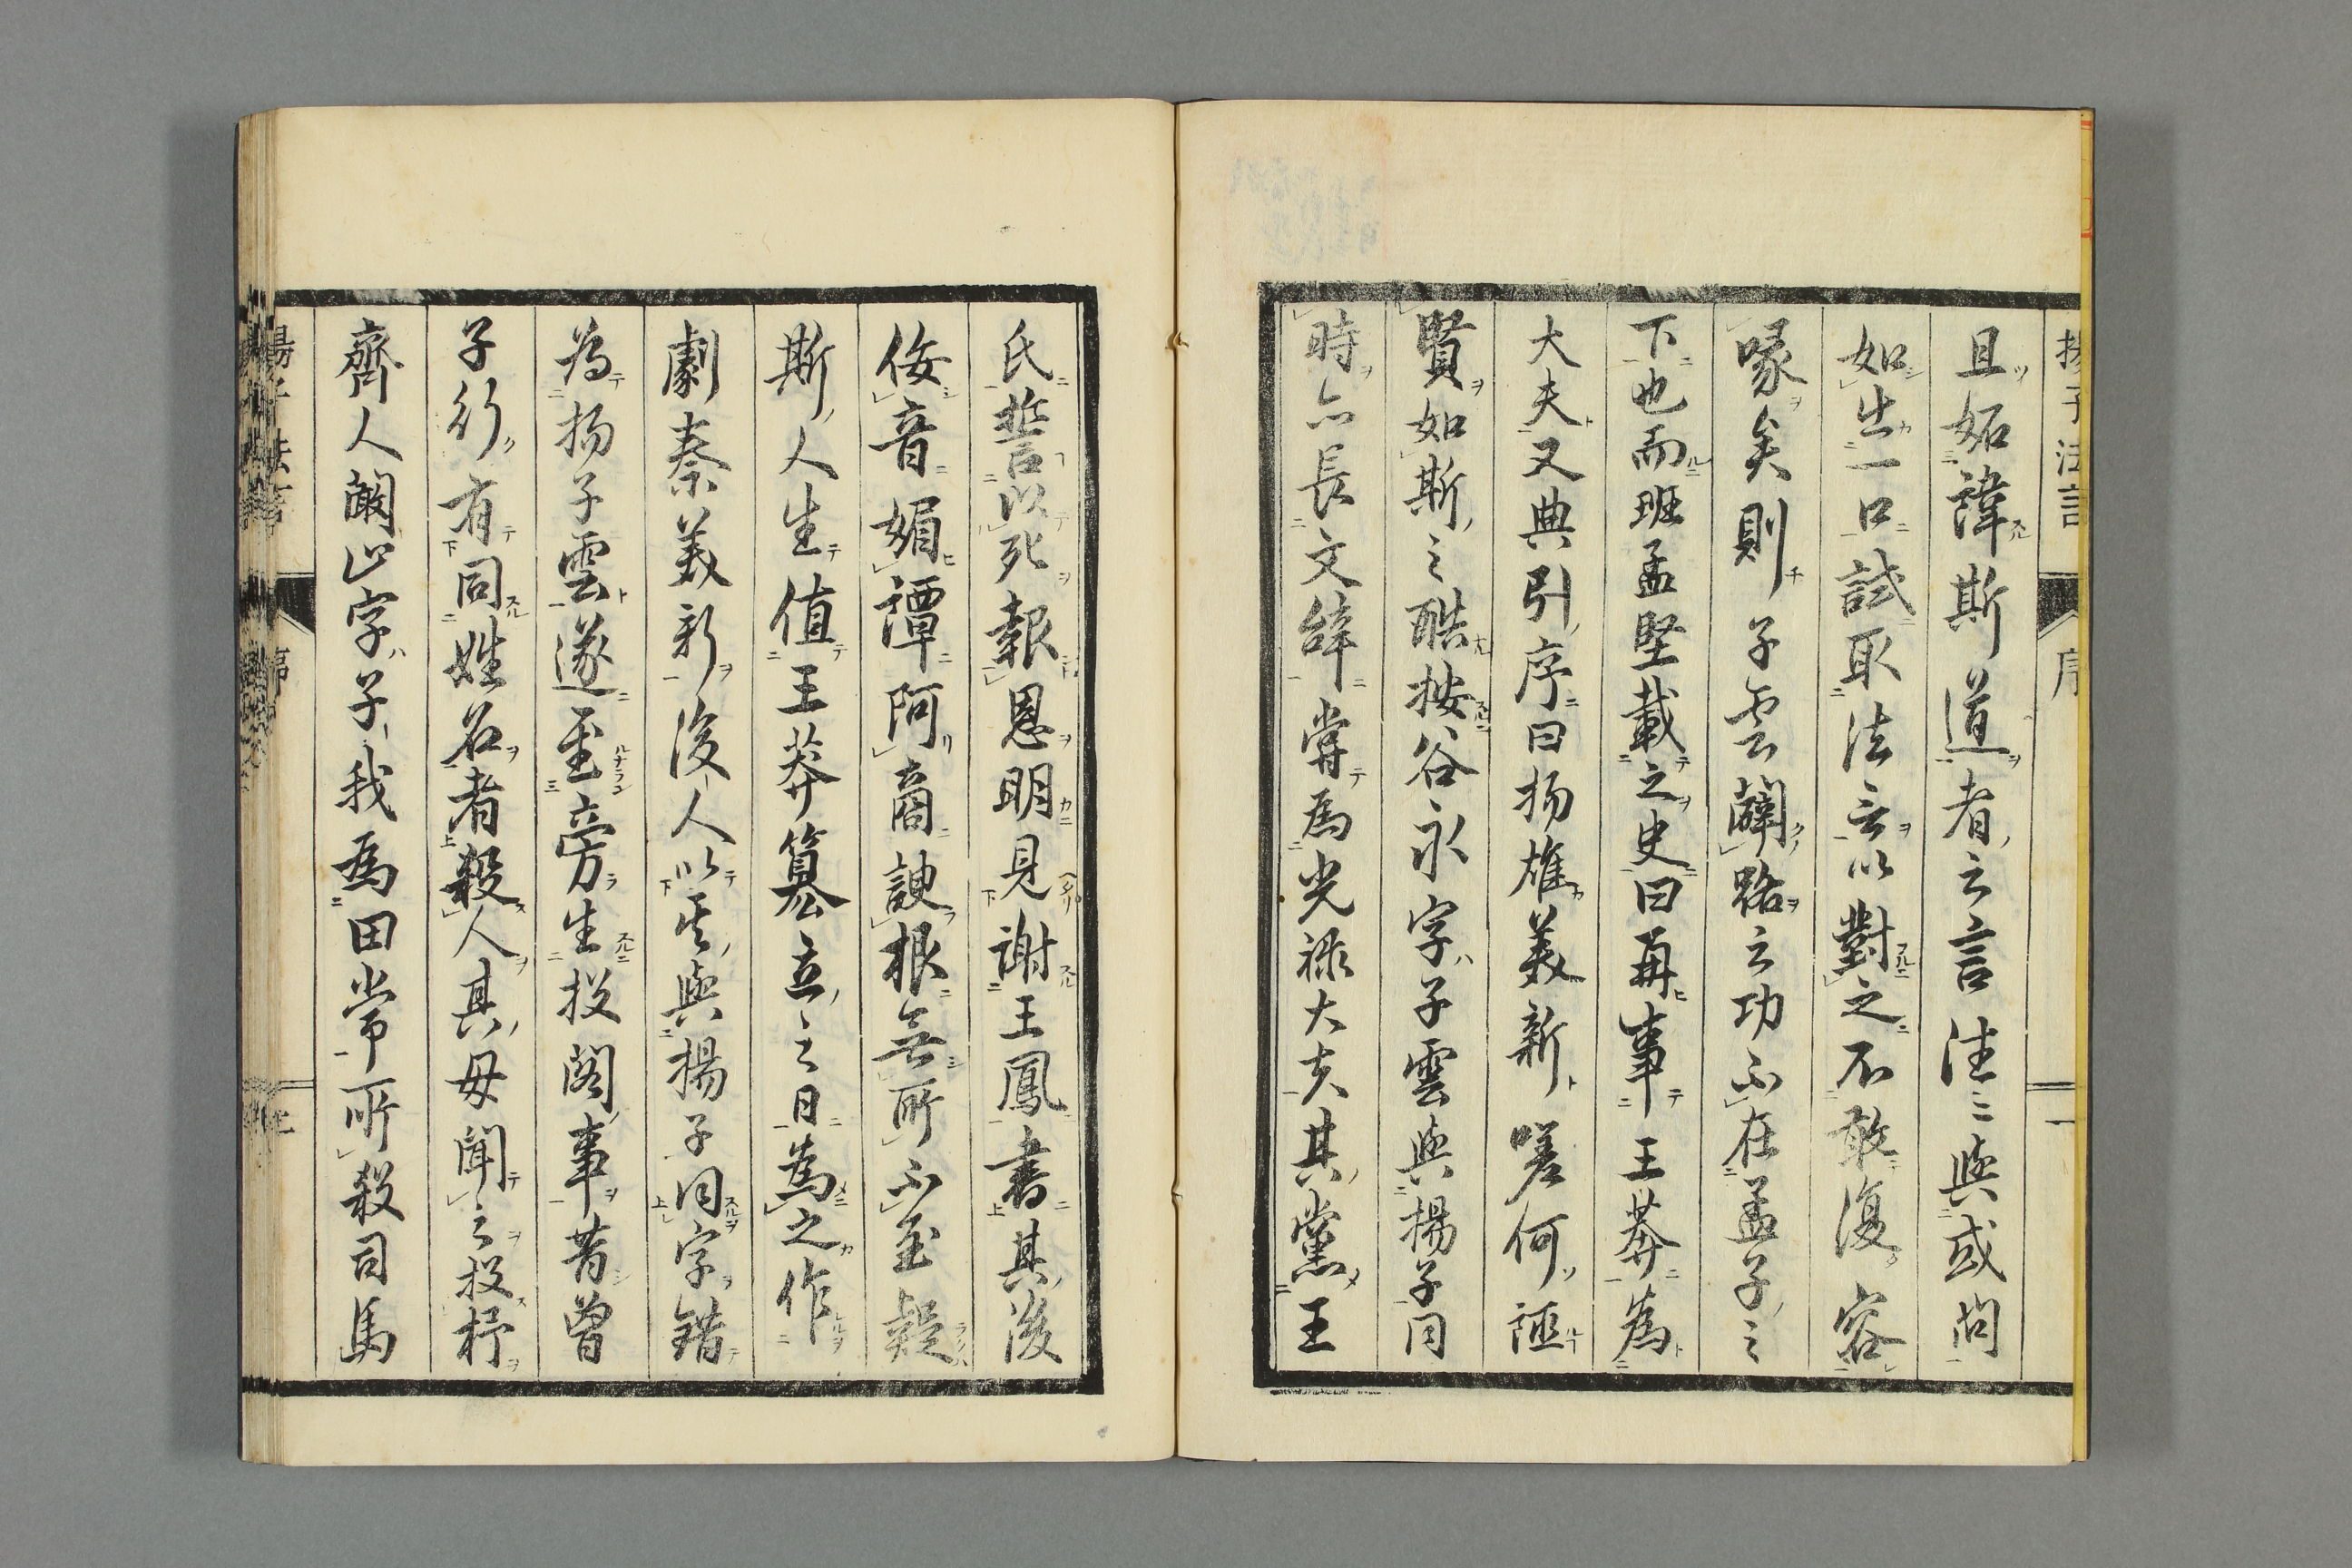 揚子法言 序 一
且妬諱斯道者之言往〻與或問
如出一口試取法言以對之不敢復容
喙矣則子雲闢路之功不在孟子之
下也而班孟堅載之史曰再事王莽為
大夫又典引序曰揚雄美新嗟何誣
賢如斯之酷按谷永字子雲與揚子同
時亦長文辞嘗為光禄大夫其黨王
氏誓以死報恩明見謝王鳳書其後
侫音媚譚阿商諛根無所不至疑
斯人生値王莽簒立之日為之作
劇秦美新後人以其與揚子同字錯
為揚子雲遂至旁生投閣事昔曽
子行有同姓名者殺人其母聞之投杼
齊人闞止字子我為田常所殺司馬